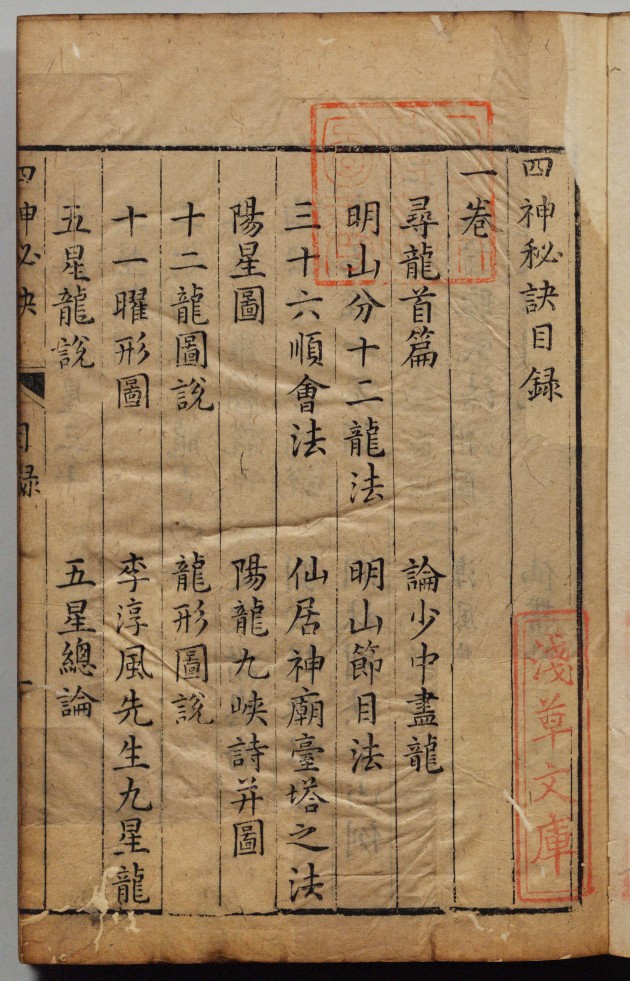 四神秘訣目録
一卷
尋龍首篇 論少中盡龍
明山分十二龍法 明山節目法
三十六順會法 仙居神廟臺塔之法
陽星圖 陽龍九峽詩并圖
十二龍圖說 龍形圖說
十一曜形圖 李淳風先生九星龍
五星龍說 五星總論
四神必决 目録 一
淺草文庫